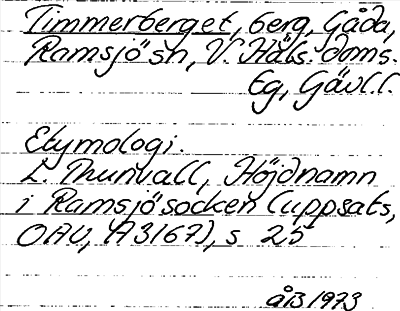 Timmerberget, berg, Gåda,
Ramsjö sn, V. Häls. doms.
tg, Gävl. l.
Etymologi.
L. Thunvall, Höjdnamn
i Ramsjö socken (uppsats,
OAU, A3167), s 25
åB 1973